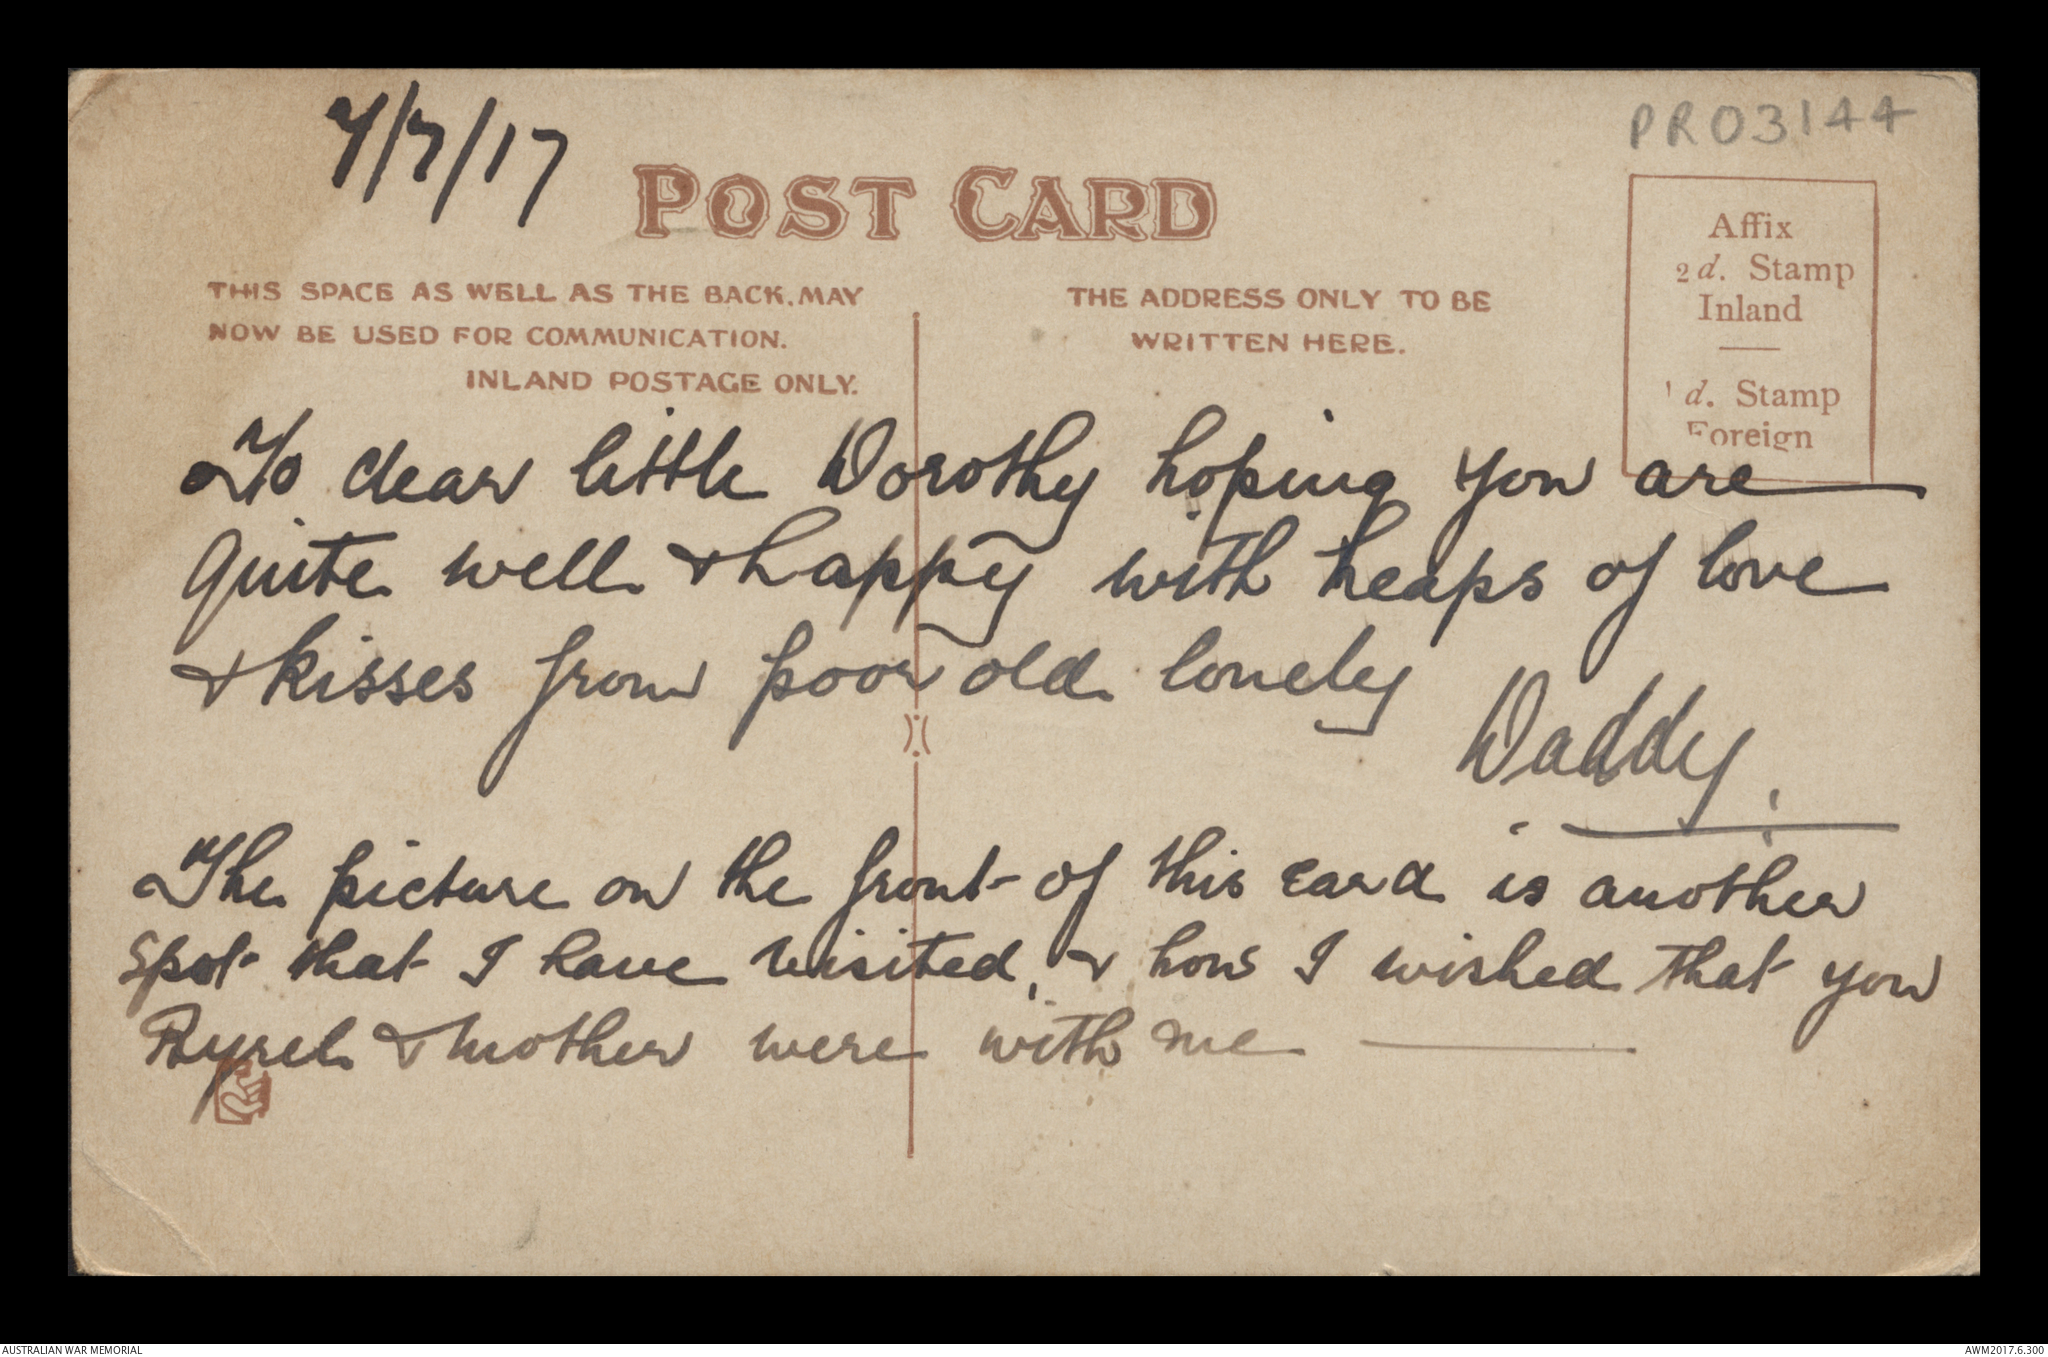 7/7/17
PR03144
POST CARD
THIS SPACE AS WELL AS THE BACK, MAY
NOW BE USED FOR COMMUNICATION.
INLAND POSTAGE ONLY.
THE ADDRESS ONLY TO BE
WRITTEN HERE.
Affix
2d. Stamp
Inland
1d. Stamp
Foreign
To dear little Dorothy hoping you are
quite well & happy with heaps of love
& kisses from poor old lonely
Daddy.
The picture on the front of this card is another
spot that I have visited, & how I wished that you
& mother were with me
AUSTRALIAN WAR MEMORIAL
AWM2017.6.300